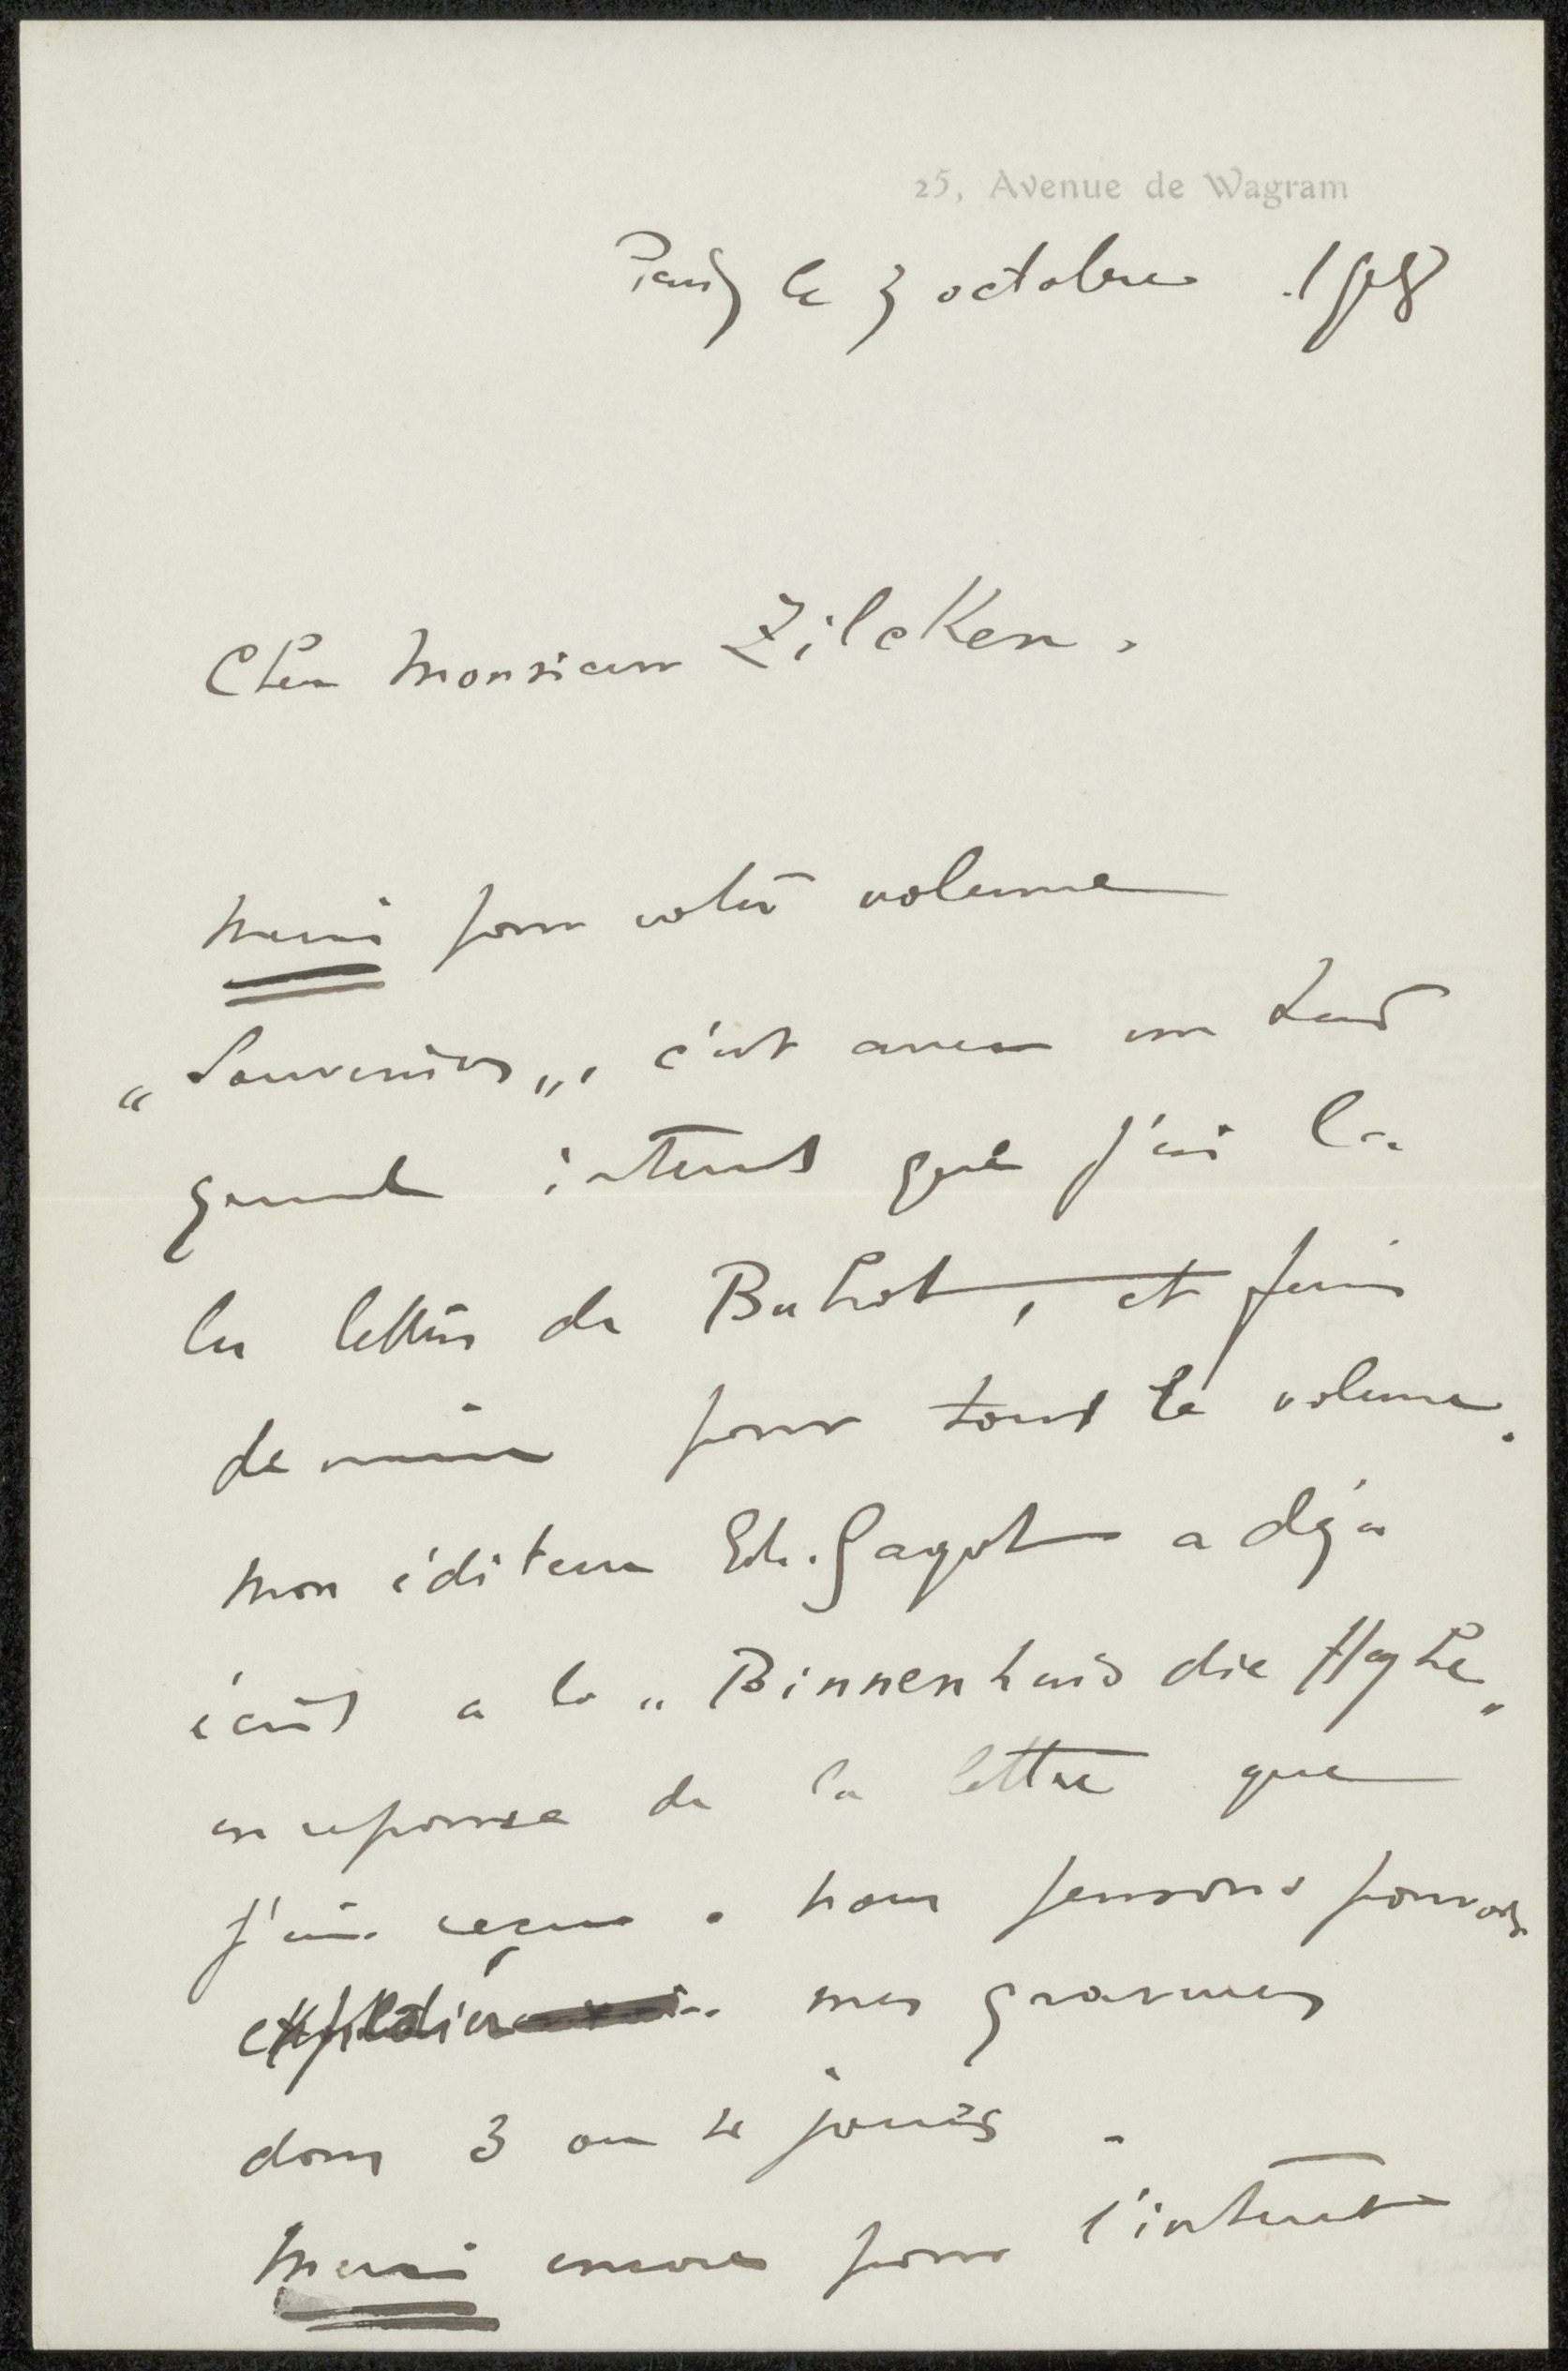 25, Avenue de Wagram
Paris le 3 octobre
Cher Monsieur Zilcken,
Merci pour votre volume
„Souvenirs„, c'est avec un très
grand interet que j'ai lu
les lettres de Buhot, et puis
de même pour tout le volume.
Mon éditeur Ed. Sagot a déja
écrit a la „Binnenhuis die Haghe„
en reponse de la lettre que
j'ai reçue. Nous pensons pouvoir
expédier mes gravures
dans 3 ou 4 jours.
Merci encore pour l'interet